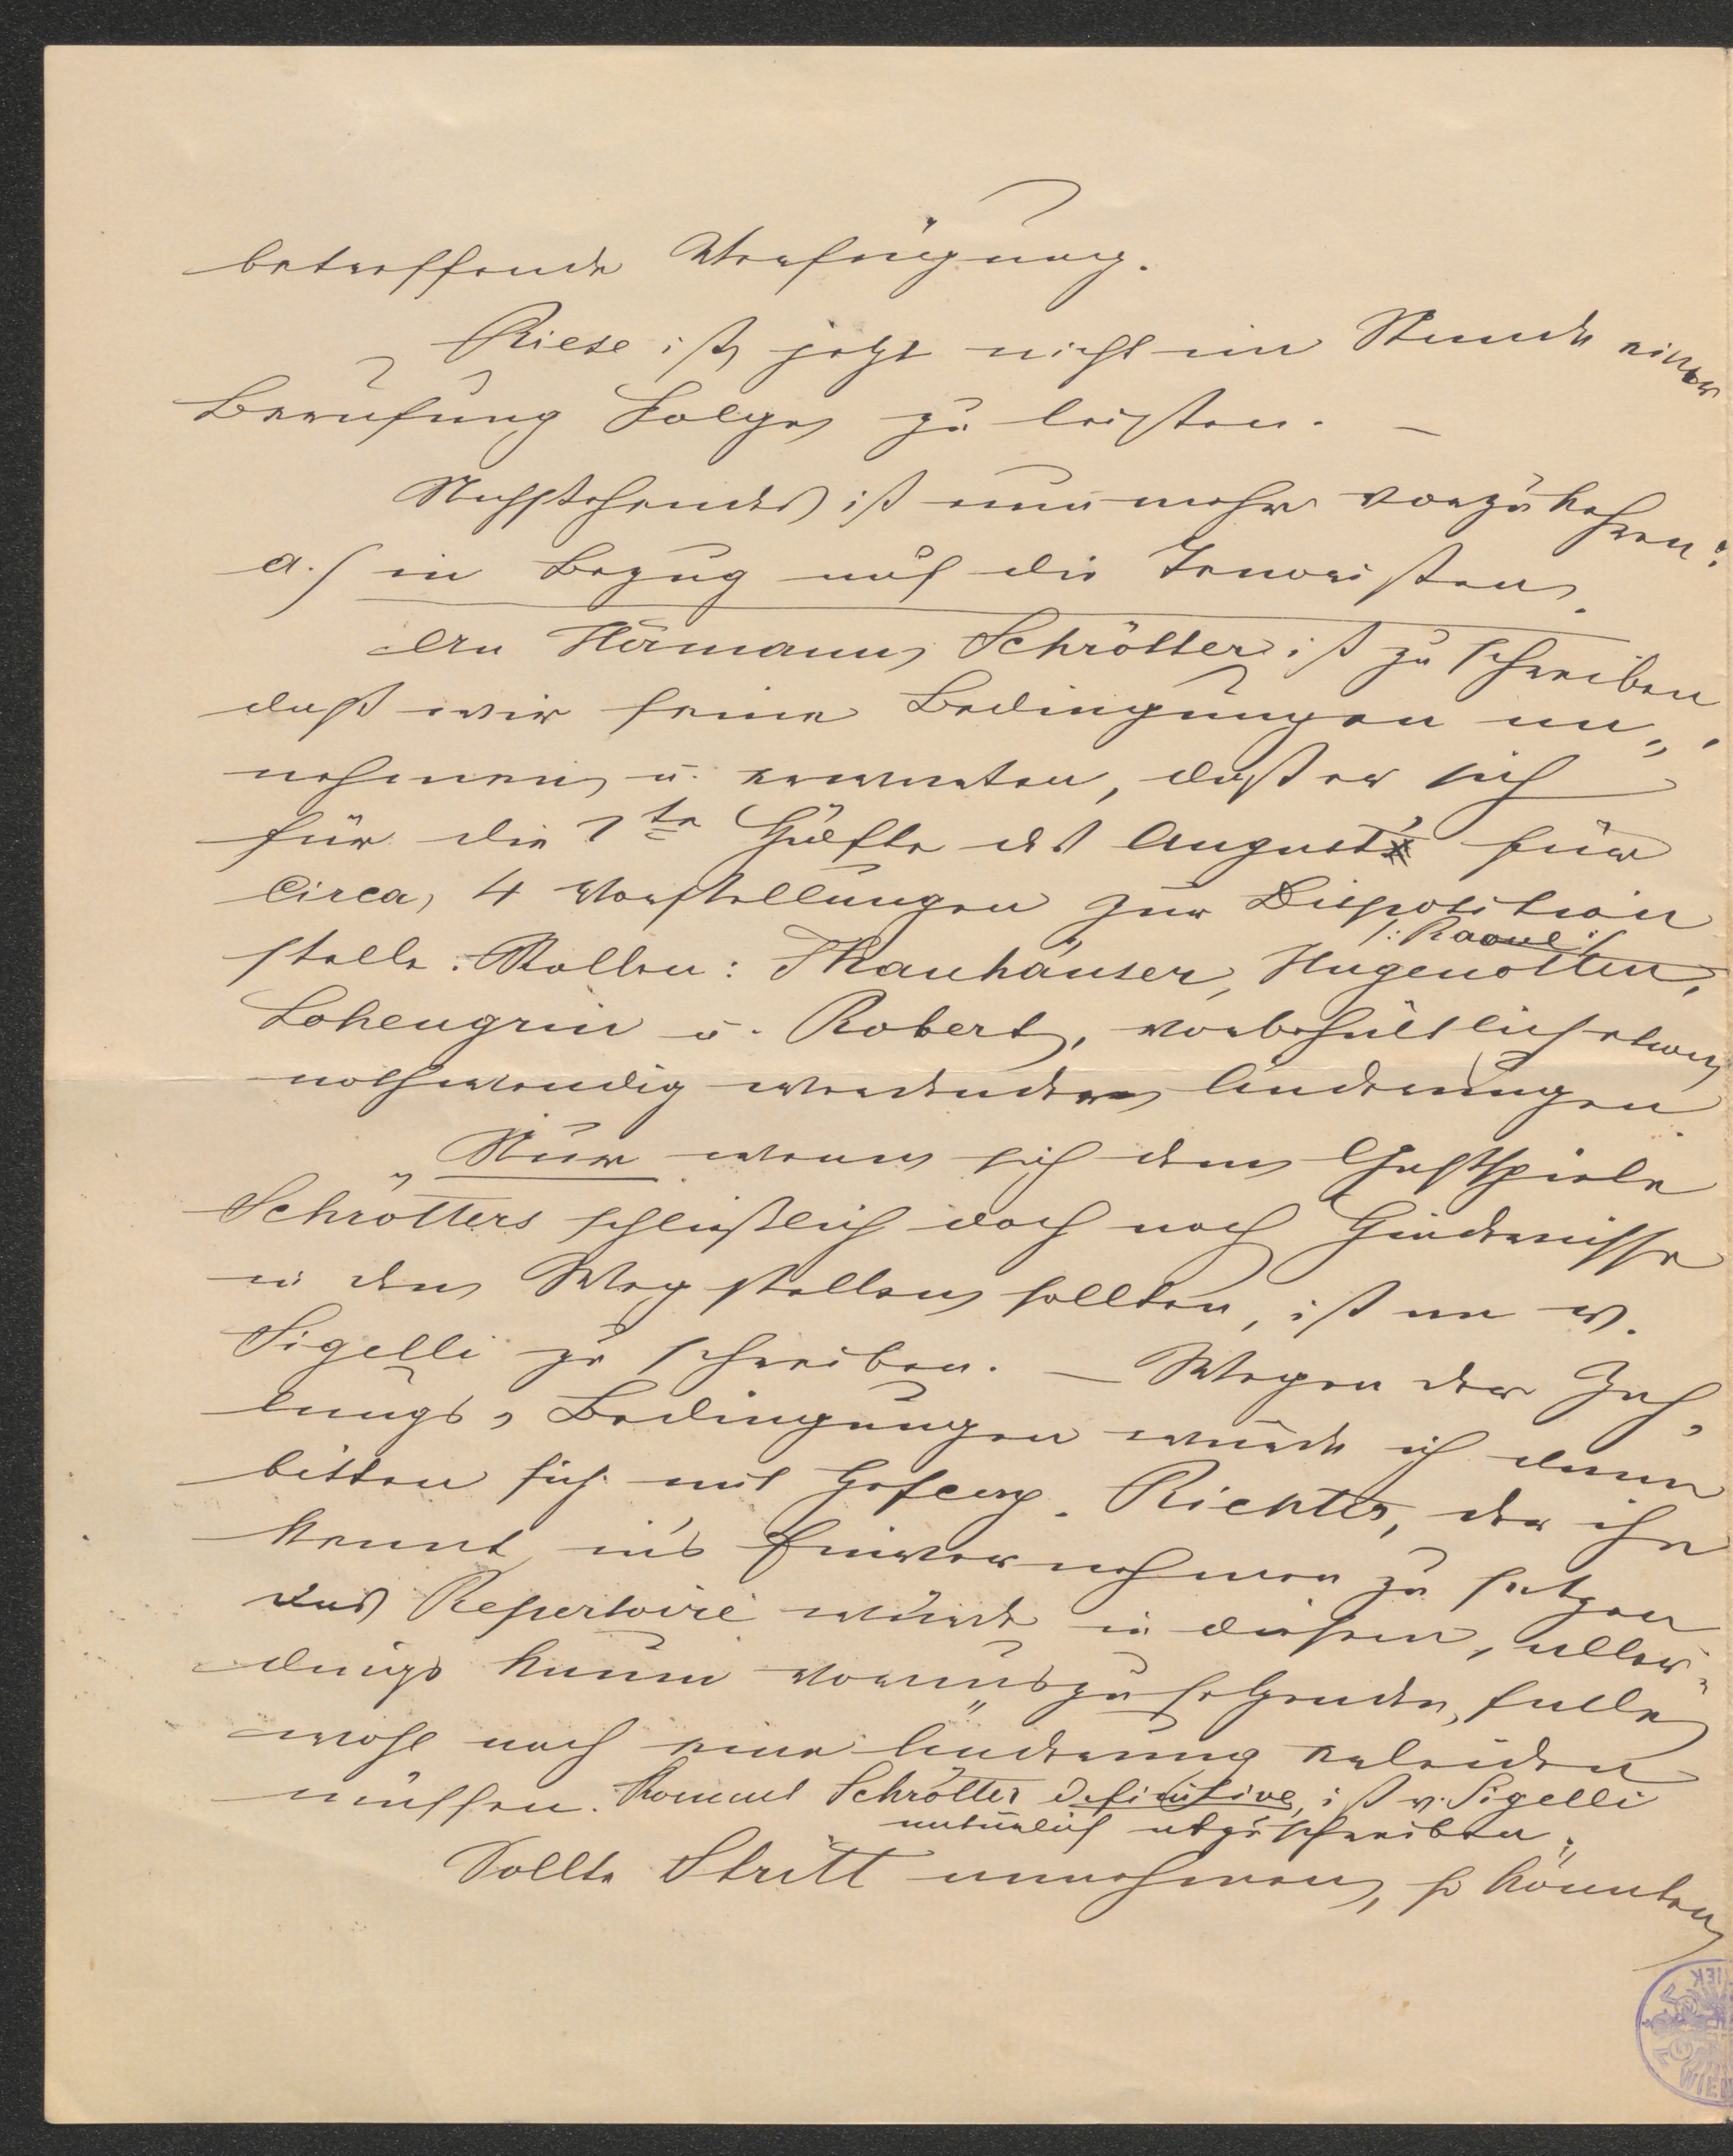 betreffende Verfügung.
Riese ist jetzt nicht im Stande einer
Berufung Folge zu leisten. –
Nachstehendes ist nunmehr vorzukehren:
a./ in Bezug auf die Tenoristen.
An Hermann Schrötter ist zu schreiben
daß wir seine Bedingungen an„
nehmen u. erwarten, daß er sich
für die 1te Hälfte des August für
Circa 4 Vorstellungen zur Disposition
stelle. Rollen: Thanhäuser, Hugenotten,
/: Raoul :/
Lohengrin u. Robert, vorbehältlich etwa
nothwendig werdender Änderungen
Nur wenn sich dem Gastspiele
Schrötters schließlich doch noch Hindernisse
in den Weg stellen sollten, ist an v.
Sigelli zu schreiben. – Wegen der Zah„
lungs„ Bedingungen würde ich dann
bitten sich mit Hofcap. Richter, der ihn
kennt, in's Einvernehmen zu setzen
das Repertoire würde in diesem, aller„
dings kaum vorauszusetzenden, Falle
wohl noch eine Änderung erleiden
müssen. Kommt Schrötter definitive, ist v. Sigelli
natürlich abzuschreiben.
Sollte Stritt annehmen, so könnten
WIEN